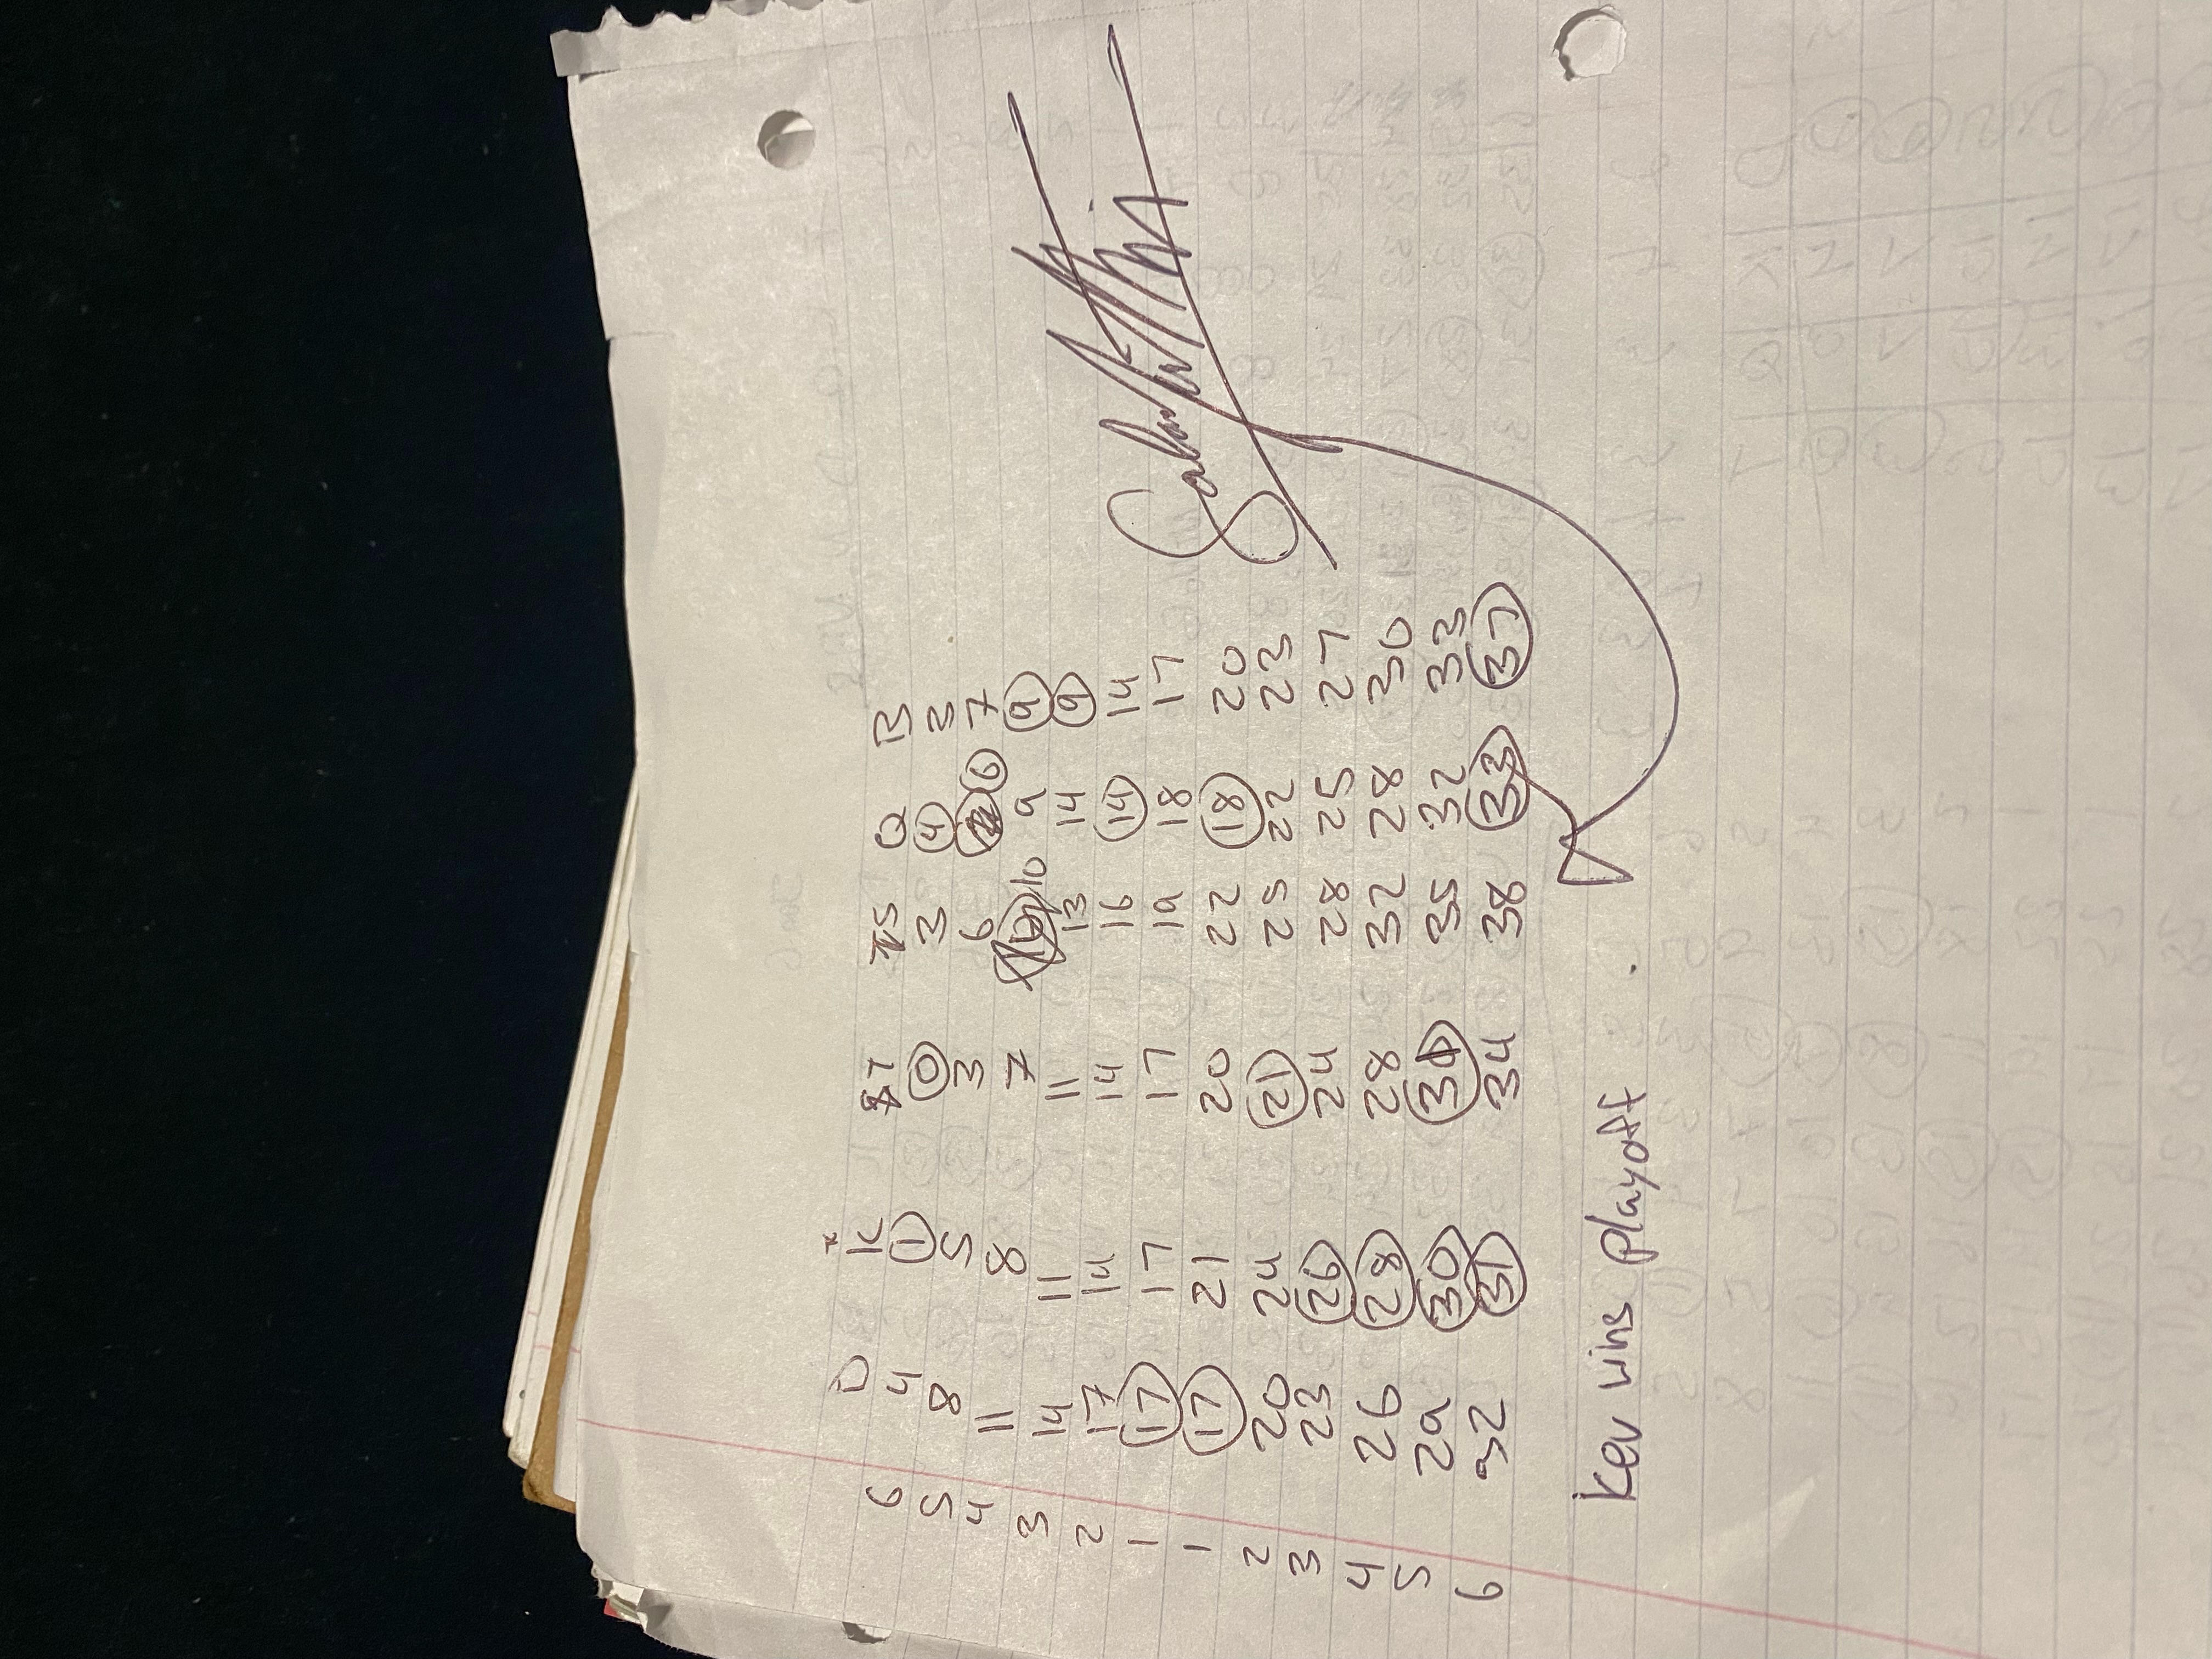 D K T S Q B
6 4 1 0 3 4 3
5 8 5 3 6 6 7
4 11 8 7 10 9 9
3 14 11 11 13 14 9
2 17 14 14 16 14 14
1 17 17 17 19 18 17
1 17 21 20 22 18 20
2 20 24 21 25 22 23
3 23 26 24 28 25 27
4 26 28 28 32 28 30
5 29 30 31 35 32 33
6 32 31 34 38 33 37
Kev wins playoff